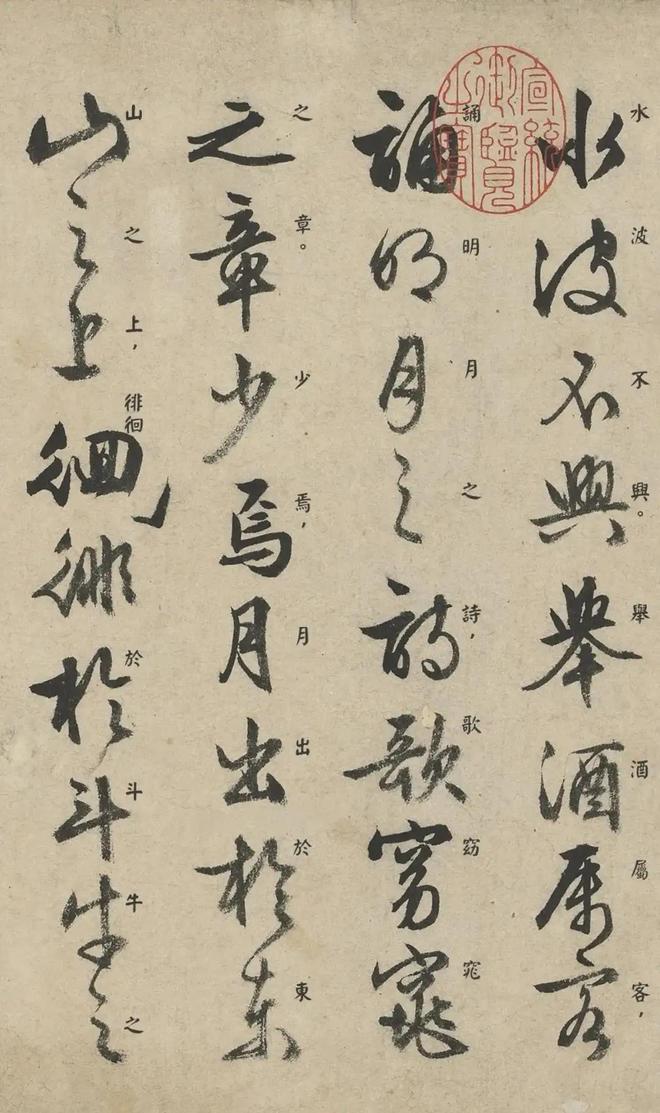 水波不興。舉酒屬客,
水波不興舉酒属客
宣統御覽之寶
誦明月之詩,歌窈窕
誦明月之詩歌窈窕
之章。少焉,月出於東
之章少焉月出於東
山之上,徘徊於斗牛之
山之上徊徘於斗牛之